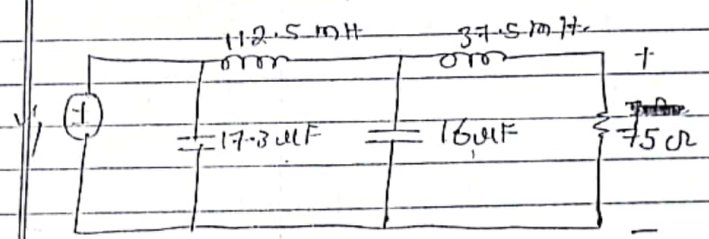 112.5 mH 37.5 mH
+
V1 + 17.3 uF 16 uF 75 Ω
-